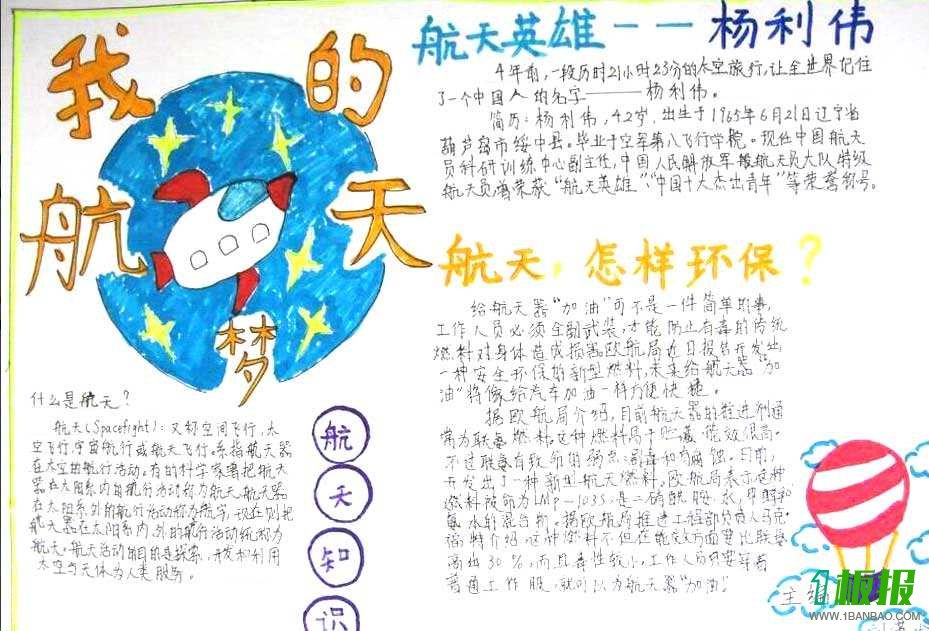 我的
航天
梦
航天英雄——杨利伟
4年前,一段历时21小时23分的太空旅行,让全世界记住
了一个中国人的名字———杨利伟。
简历:杨利伟,42岁,出生于1965年6月21日辽宁省
葫芦岛市绥中县。毕业于空军第八飞行学院。现任中国航天
员科研训练中心副主任,中国人民解放军航天员大队特级
航天员,曾荣获“航天英雄”、“中国十大杰出青年”等荣誉称号。
航天,怎样环保?
给航天器“加油”可不是一件简单的事,
工作人员必须全副武装,才能防止有毒的传统
燃料对身体造成损害,欧航局近日报告开发出
一种安全环保的新型燃料,未来给航天器“加
油”将像给汽车加油一样方便快捷。
据欧航局介绍,目前航天器的推进剂通
常为联氨燃料,这种燃料易于贮藏,能效很高,
不过联氨有致命的弱点:剧毒和有腐蚀。日前,
开发出了一种新型航天燃料,欧航局表示这种
燃料被称为LMP-103S,是二硝酰胺、水、甲醇和
氨水的混合物。据欧航局推进工程部负责人马克·
福特介绍,这种燃料不但在能效方面要比联氨
高出30%,而且毒性较小,工作人员只要穿着
普通工作服,就可以为航天器“加油”。
什么是航天?
航天(Spacefight):又称空间飞行,太
空飞行,宇宙航行或航天飞行。系指航天器
在太空的航行活动。有的科学家曾把航天
器在太阳系内的航行活动称为航天,航天器
在太阳系外的航行活动称为航宇,现在则把
航天器在太阳系内外的航行活动统称为
航天。航天活动的目的是探索,开发和利用
太空与天体为人类服务。
航
天
知
识
主编
1板报
WWW.1BANBAO.COM